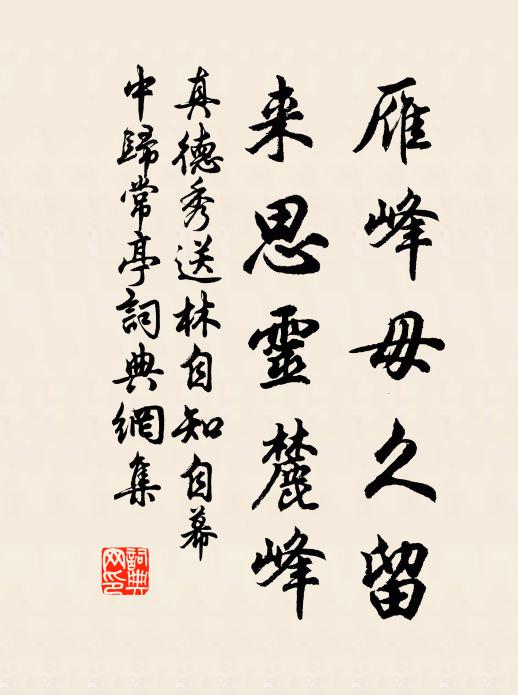 雁峰毋久留
来思靈麓峰
真德秀送林自知自幕
中歸常亭詞典網集
詞典
网印